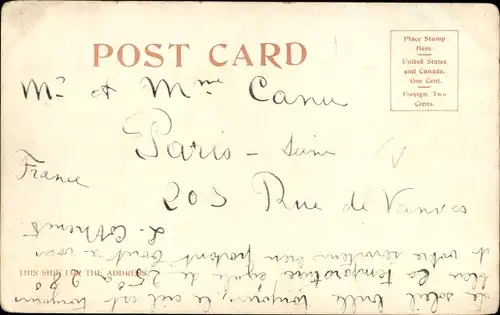 POST CARD
Place Stamp
Here.
United States
and Canada,
One Cent.
Foreign, Two
Cents.
Mr et Mme Canu
Paris - Seine
France
205 Rue de Vanves
THIS SIDE FOR THE ADDRESS
Le soleil brille toujours, le ciel est toujours
bleu la température égale de 25° à 28°
et votre serviteur bien portant Tout à vous